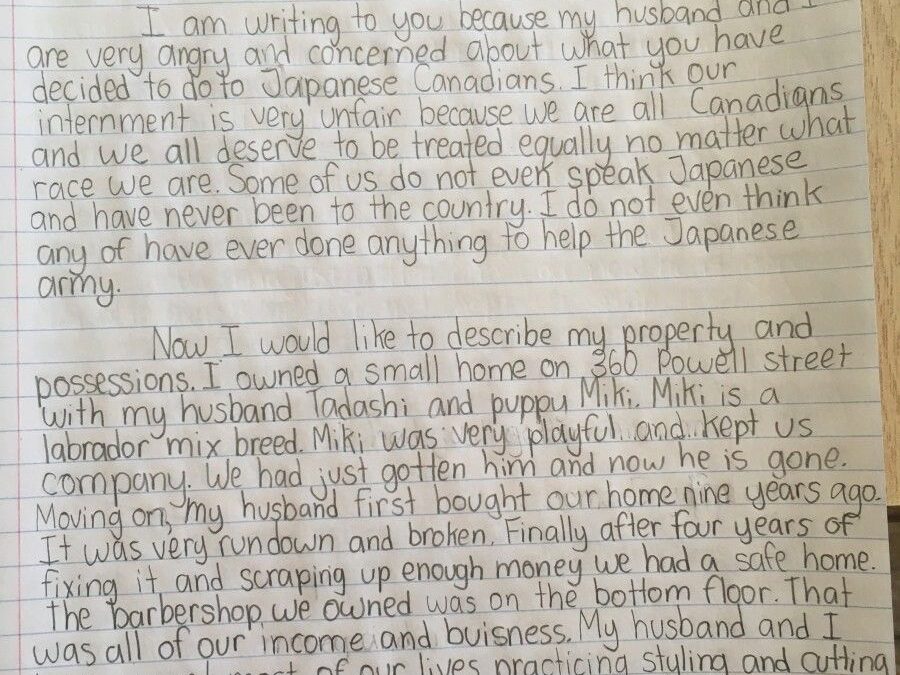 I am writing to you because my husband and I
are very angry and concerned about what you have
decided to do to Japanese Canadians. I think our
internment is very unfair because we are all Canadians
and we all deserve to be treated equally no matter what
race we are. Some of us do not even speak Japanese
and have never been to the country. I do not even think
any of have ever done anything to help the Japanese
army.
Now I would like to describe my property and
possessions. I owned a small home on 360 Powell street
with my husband Tadashi and puppy Miki. Miki is a
labrador mix breed. Miki was very playful and kept us
company. We had just gotten him and now he is gone.
Moving on, my husband first bought our home nine years ago.
It was very rundown and broken. Finally after four years of
fixing it and scraping up enough money we had a safe home.
The barbershop we owned was on the bottom floor. That
was all of our income and buisness. My husband and I
most of our lives practicing styling and cutting